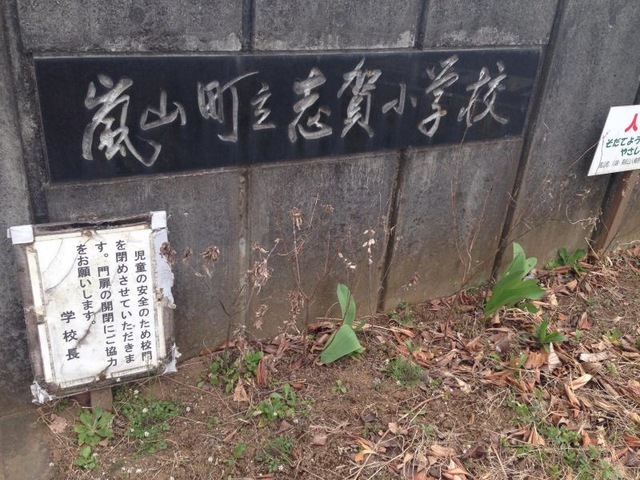 嵐山町立志賀小学校
児童の安全のため校門
を閉めさせていただきま
す。門扉の開閉にご協力
をお願いします。
学校長
人
そだてよう
やさし